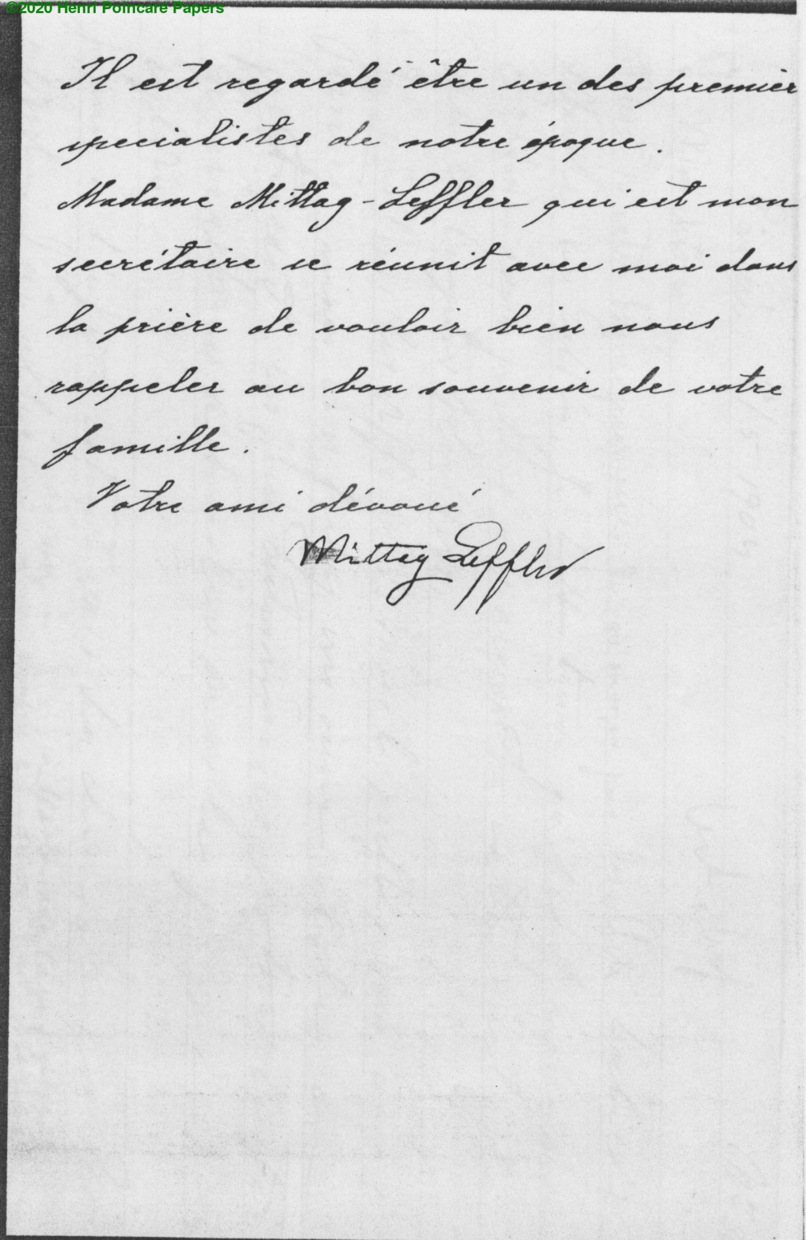 ©2020 Henri Poincaré Papers
Il est regardé être un des premier
specialistes de notre époque.
Madame Mittag-Leffler qui est mon
secrétaire se réunit avec moi dans
la prière de vouloir bien nous
rappeler au bon souvenir de votre
famille.
Votre ami dévoué
Mittag Leffler